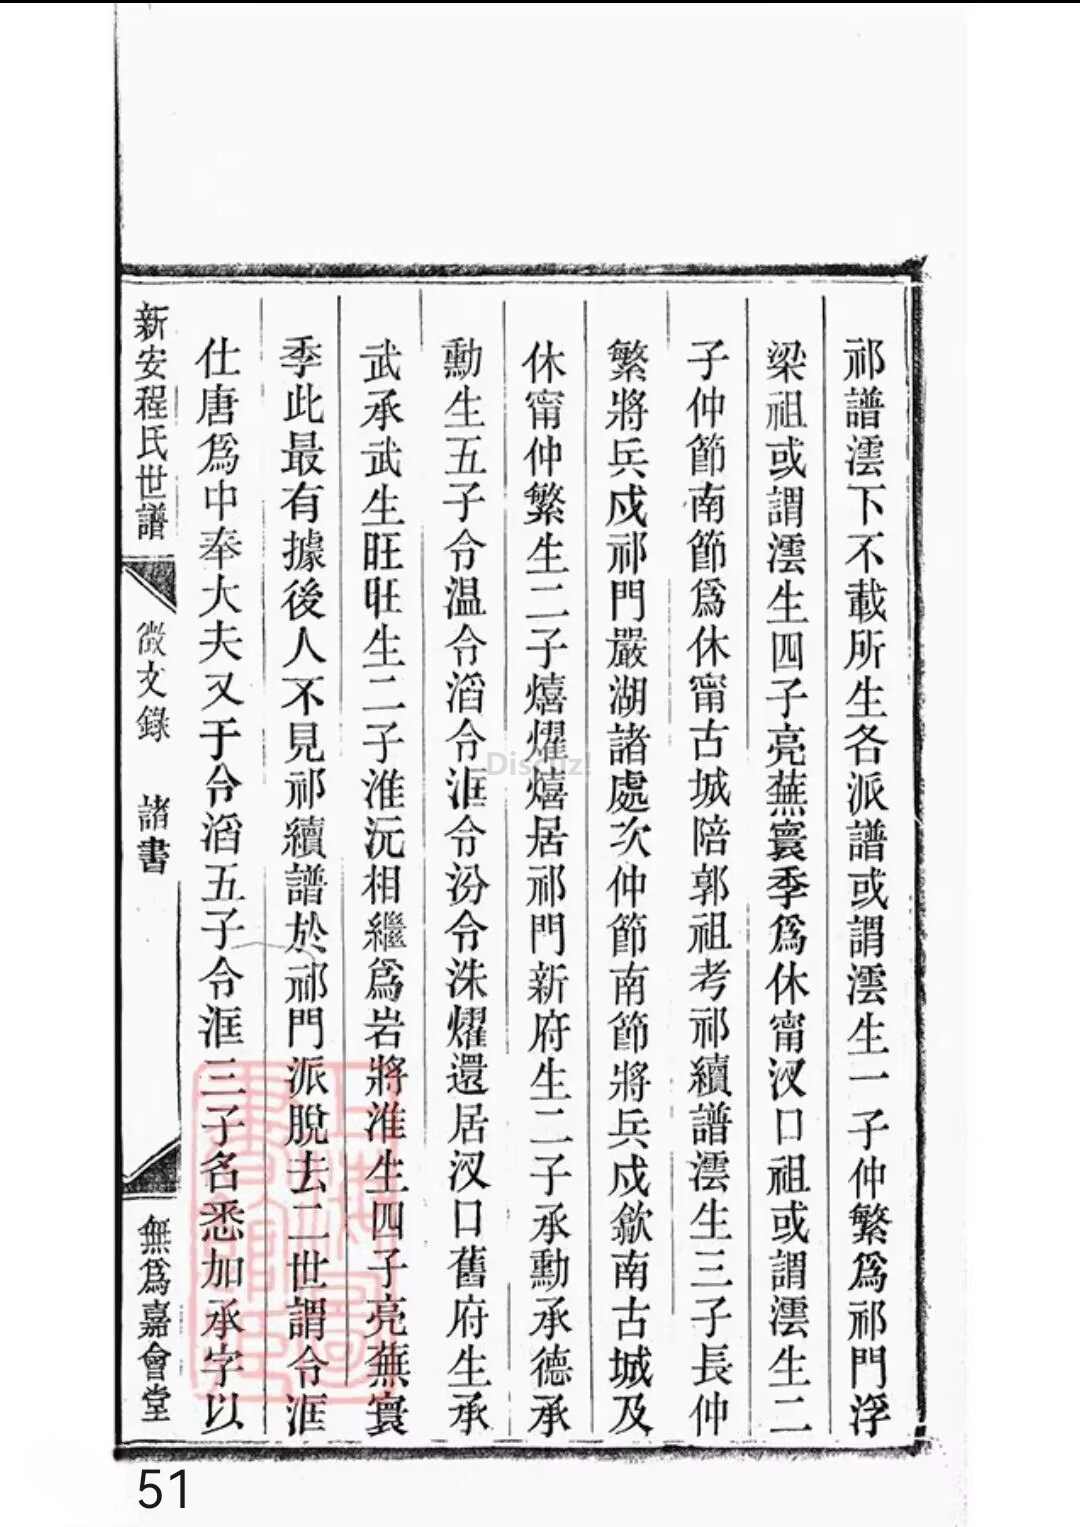 祁譜澐下不載所生各派譜或謂澐生一子仲繁爲祁門浮
梁祖或謂澐生四子亮蕪寰季爲休甯汊口祖或謂澐生二
子仲節南節爲休甯古城陪郭祖考祁續譜澐生三子長仲
繁將兵戍祁門嚴湖諸處次仲節南節將兵戍歙南古城及
休甯仲繁生二子熺燿熺居祁門新府生二子承勳承德承
勳生五子令温令滔令洭令汾令洙燿還居汊口舊府生承
武承武生旺旺生二子淮沅相繼爲岩將淮生四子亮蕪寰
季此最有據後人不見祁續譜於祁門派脫去二世謂令洭
仕唐爲中奉大夫又于令滔五子令洭三子名悉加承字以
新安程氏世譜 徵文錄 諸書 無爲嘉會堂
Discuz!
51